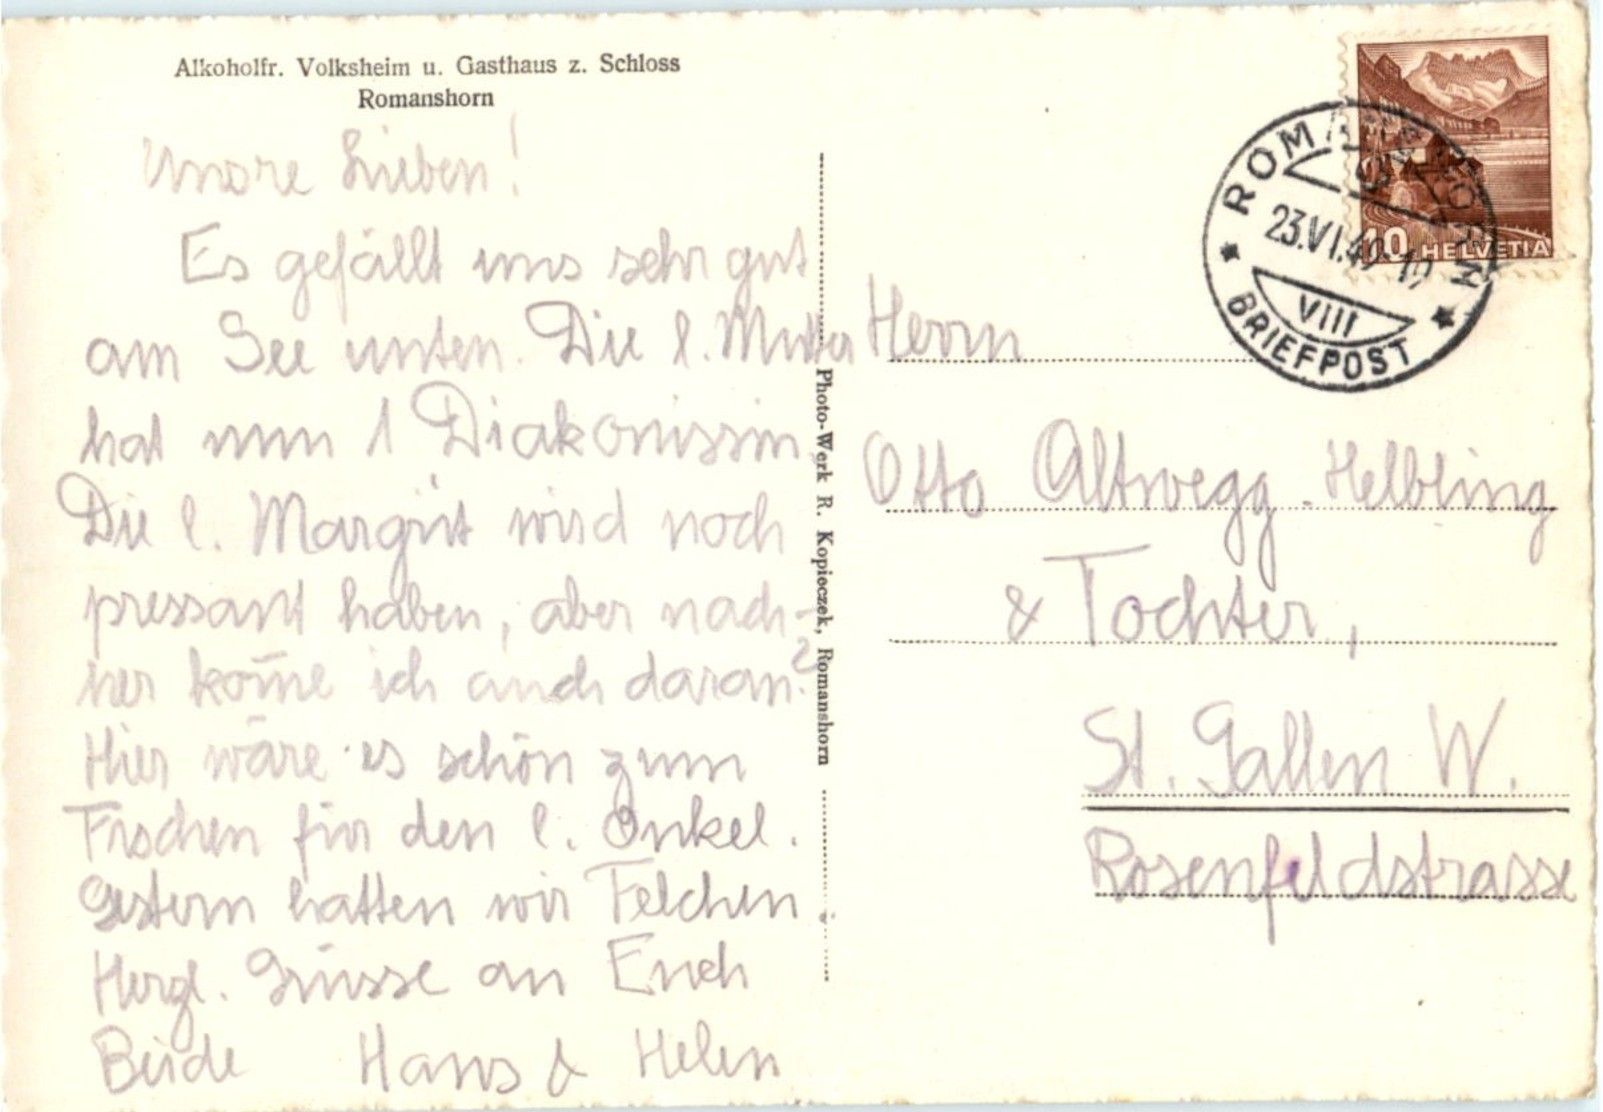 Alkoholfr. Volksheim u. Gasthaus z. Schloss
Romanshorn
Unsre Lieben!
Es gefällt uns sehr gut
am See unten. Die l. Mutter
hat nun 1 Diakonissin.
Die l. Margrit wird noch
pressant haben, aber nach-
her kom̄e ich auch daran?
Hier wäre es schön zum
Fischen für den l. Onkel.
Gestern hatten wir Felchen.
Herzl. Grüsse an Euch
Beide Hans & Helen
Photo-Werk R. Kopieczek, Romanshorn
ROMANSHORN
23.VI.49-19
VIII
BRIEFPOST
10 HELVETIA
Herrn
Otto Altwegg-Helbling
& Tochter,
St. Gallen W.
Rosenfeldstrasse